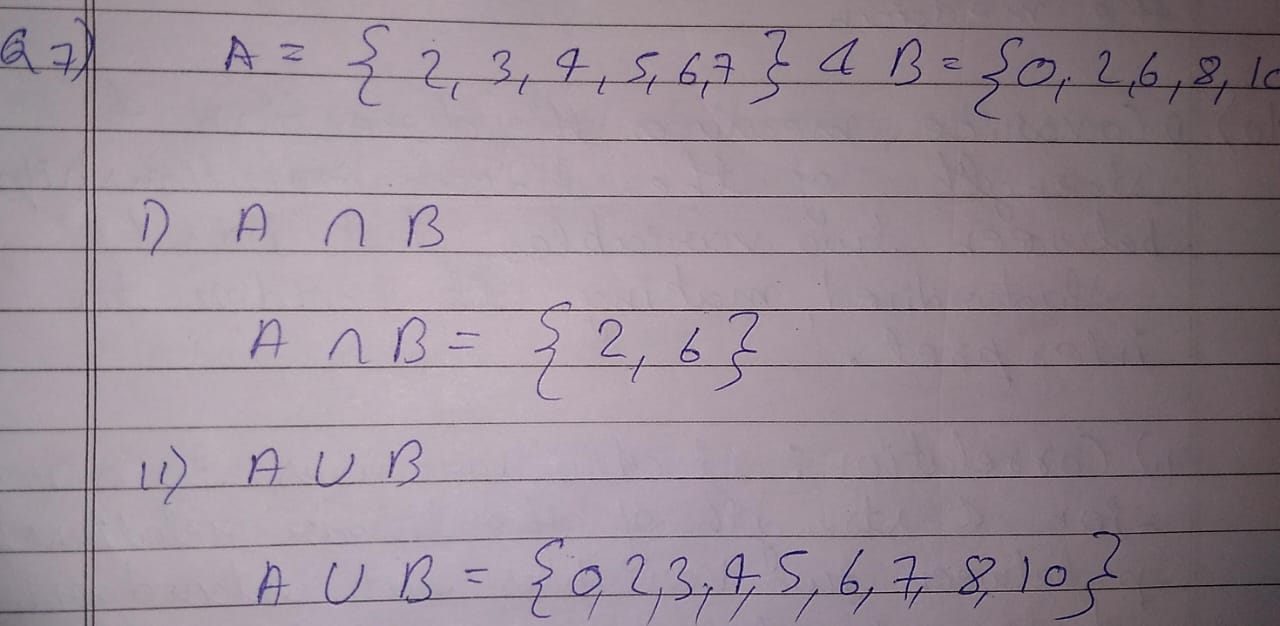 Q7) A = { 2, 3, 4, 5, 6, 7 } & B = { 0, 2, 6, 8, 10
I) A ∩ B
A ∩ B = { 2, 6 }
II) A ∪ B
A ∪ B = { 0, 2, 3, 4, 5, 6, 7, 8, 10 }